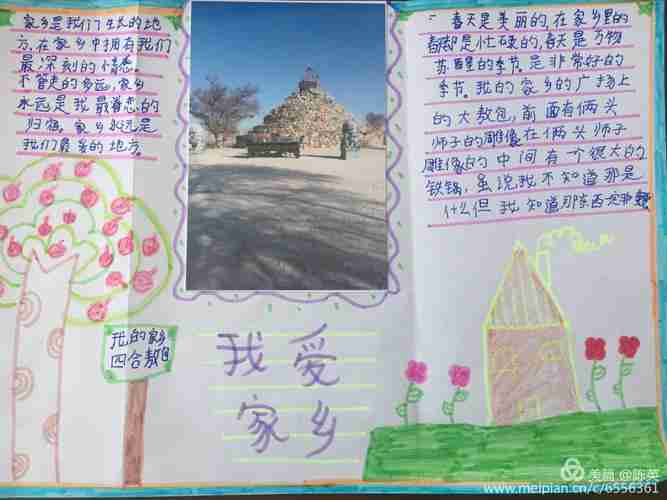 家乡是我们生长的地
方,在家乡中拥有我们
最深刻的情悉。
不管走的多远,家乡
永远是我最眷恋的
归宿。家乡永远是
我们最爱的地方。
春天是美丽的,在家乡里的
春却是忙碌的,春天是万物
苏醒的季节。是非常好的
季节。我的家乡的广场上
的大敖包,前面有俩头
师子的雕像在俩头师子
雕像的中间有个很大的
铁锅,虽说我不知道那是
什么但我知道那东西
我的家乡
四合敖包
我爱
家乡
美篇 @陈英
www.meipian.cn/c/6556361